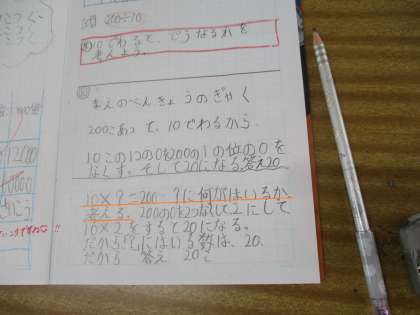 200÷10
10でわると、どうなるかを
考えよう。
まえのべんきょうのぎゃく
200こあって、10でわるから
10この1つの0を200の1の位の0を
なくす。そして20になる。答え20
10×?=200 ?に何がはいるか
考える。200の0を2つなくして2にして
10×2をすると20になる。
だから?にはいる数は、20、
だから 答え 20こ
12000